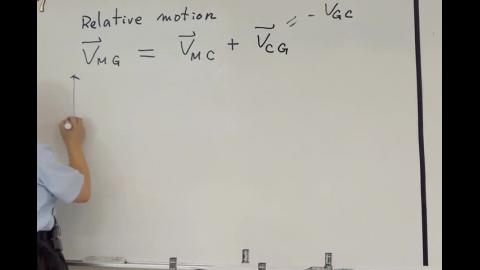 Relative motion
V⃗_MG = V⃗_MC + V⃗_CG = - V_GC